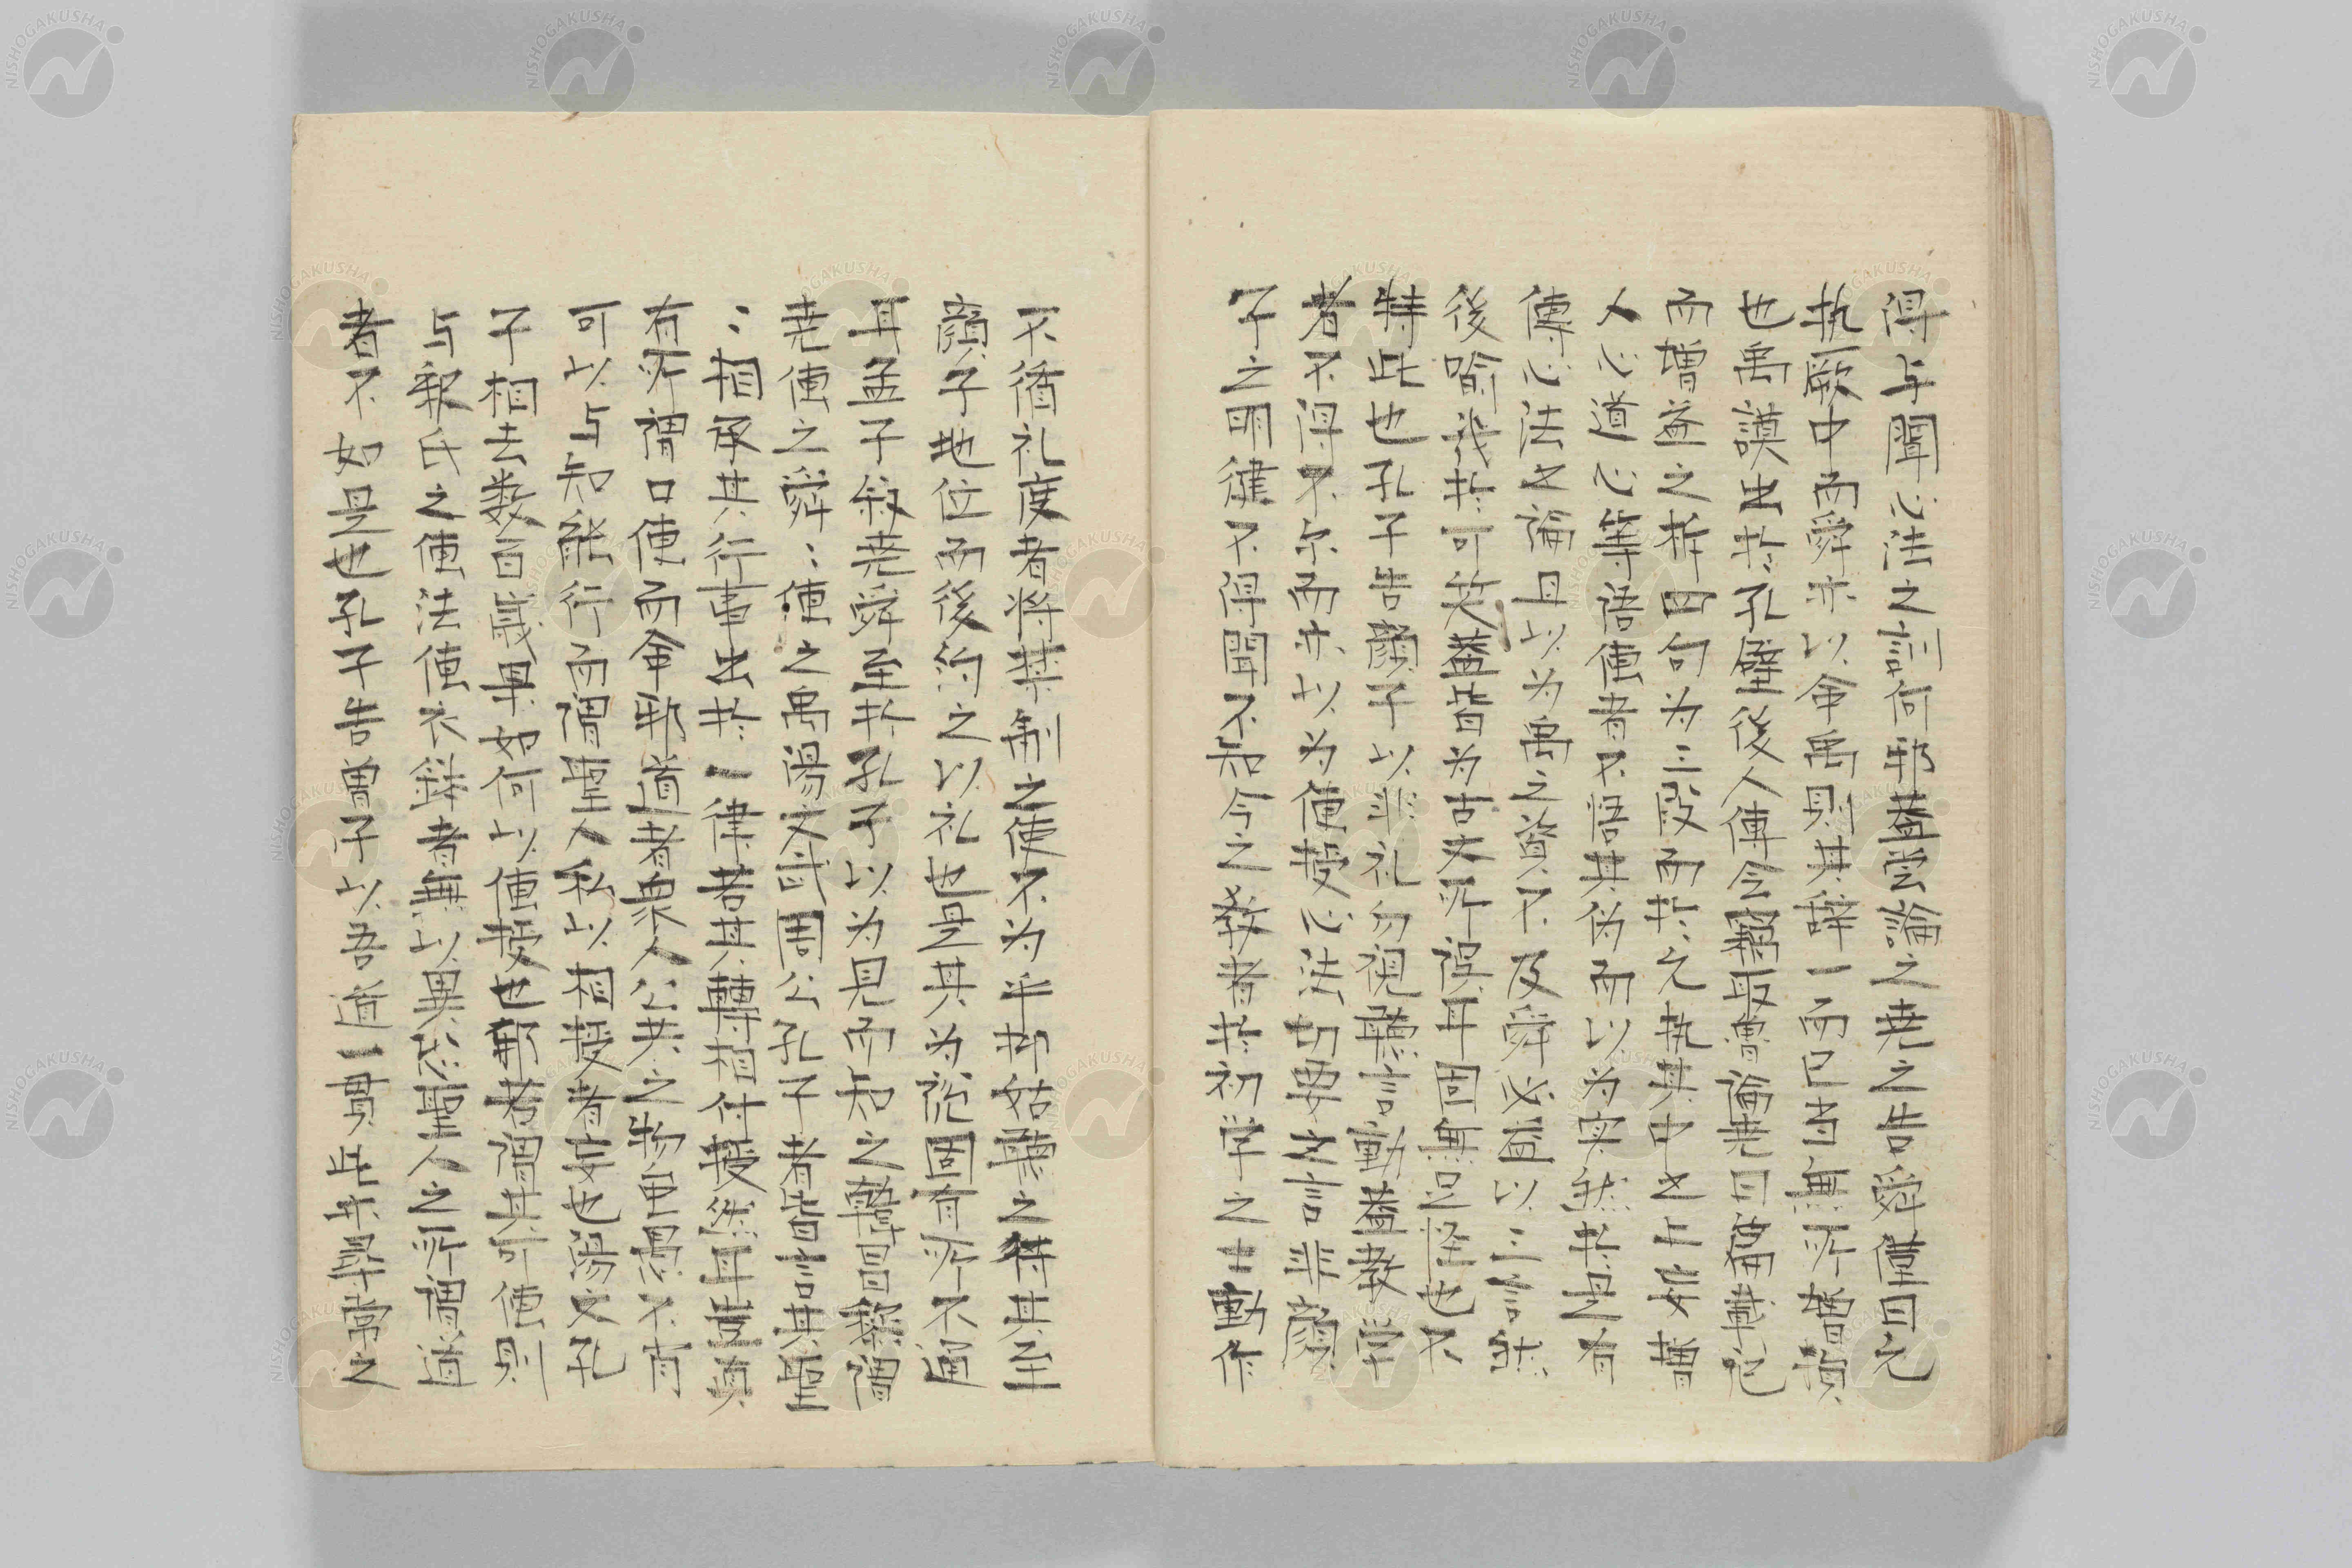 得与聞心法之訓何邪蓋尝論之尭之告舜僅曰允
执厥中而舜亦以命禹則其辞一而已当無所增損
也禹謨出於孔壁後人傅会竊取魯論尭曰篇載记
而增益之析四句为三段而於允执其中之上妄增
人心道心等语傳者不悟其伪而以为实然於是有
傳心法之論且以为禹之資不及舜必益以三言然
後喻幾於可笑蓋皆为古文所误耳固無足怪也不
特此也孔子告顔子以非礼勿視聴言動蓋教学
者不得不尔而亦以为傳授心法切要之言非顔
子之明健不得聞不知今之教者於初学之士動作
不循礼度者将禁制之使不为乎抑姑聴之待其至
顔子地位而後约之以礼也是其为说固有所不通
耳孟子叙尭舜至於孔子以为見而知之韓昌黎謂
尭傳之舜〻傳之禹湯文武周公孔子者皆言其聖
〻相承其行事出於一律若其轉相付授然耳豈真
有所謂口傳而命邪道者衆人公共之物虽愚不肖
可以与知能行而謂聖人私以相授者妄也湯文孔
子相去数百歳果如何以傳授也邪若謂其可傳則
与釈氏之傳法傳衣鉢者無以異恐聖人之所謂道
者不如是也孔子告曽子以吾道一貫此亦尋常之